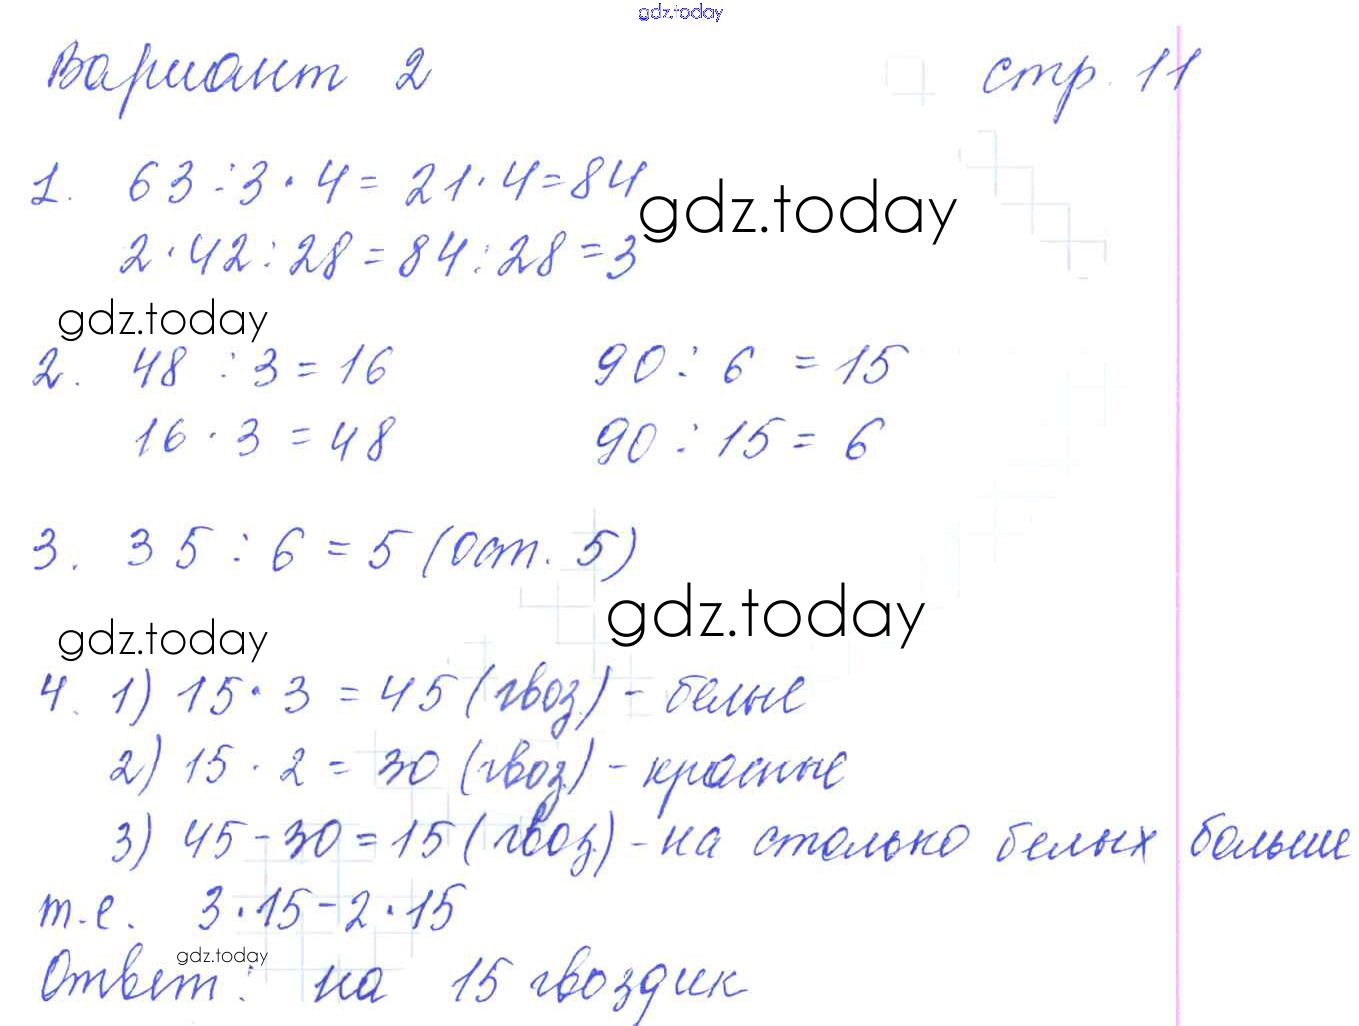 gdz.today
Вариант 2 стр. 11
1. 63 : 3 · 4 = 21 · 4 = 84
gdz.today
2 · 42 : 28 = 84 : 28 = 3
gdz.today
2. 48 : 3 = 16 90 : 6 = 15
16 · 3 = 48 90 : 15 = 6
3. 35 : 6 = 5 (ост. 5)
gdz.today
gdz.today
4. 1) 15 · 3 = 45 (гвоз) - белые
2) 15 · 2 = 30 (гвоз) - красные
3) 45 - 30 = 15 (гвоз) - на столько белых больше
т.е. 3 · 15 - 2 · 15
gdz.today
Ответ: на 15 гвоздик